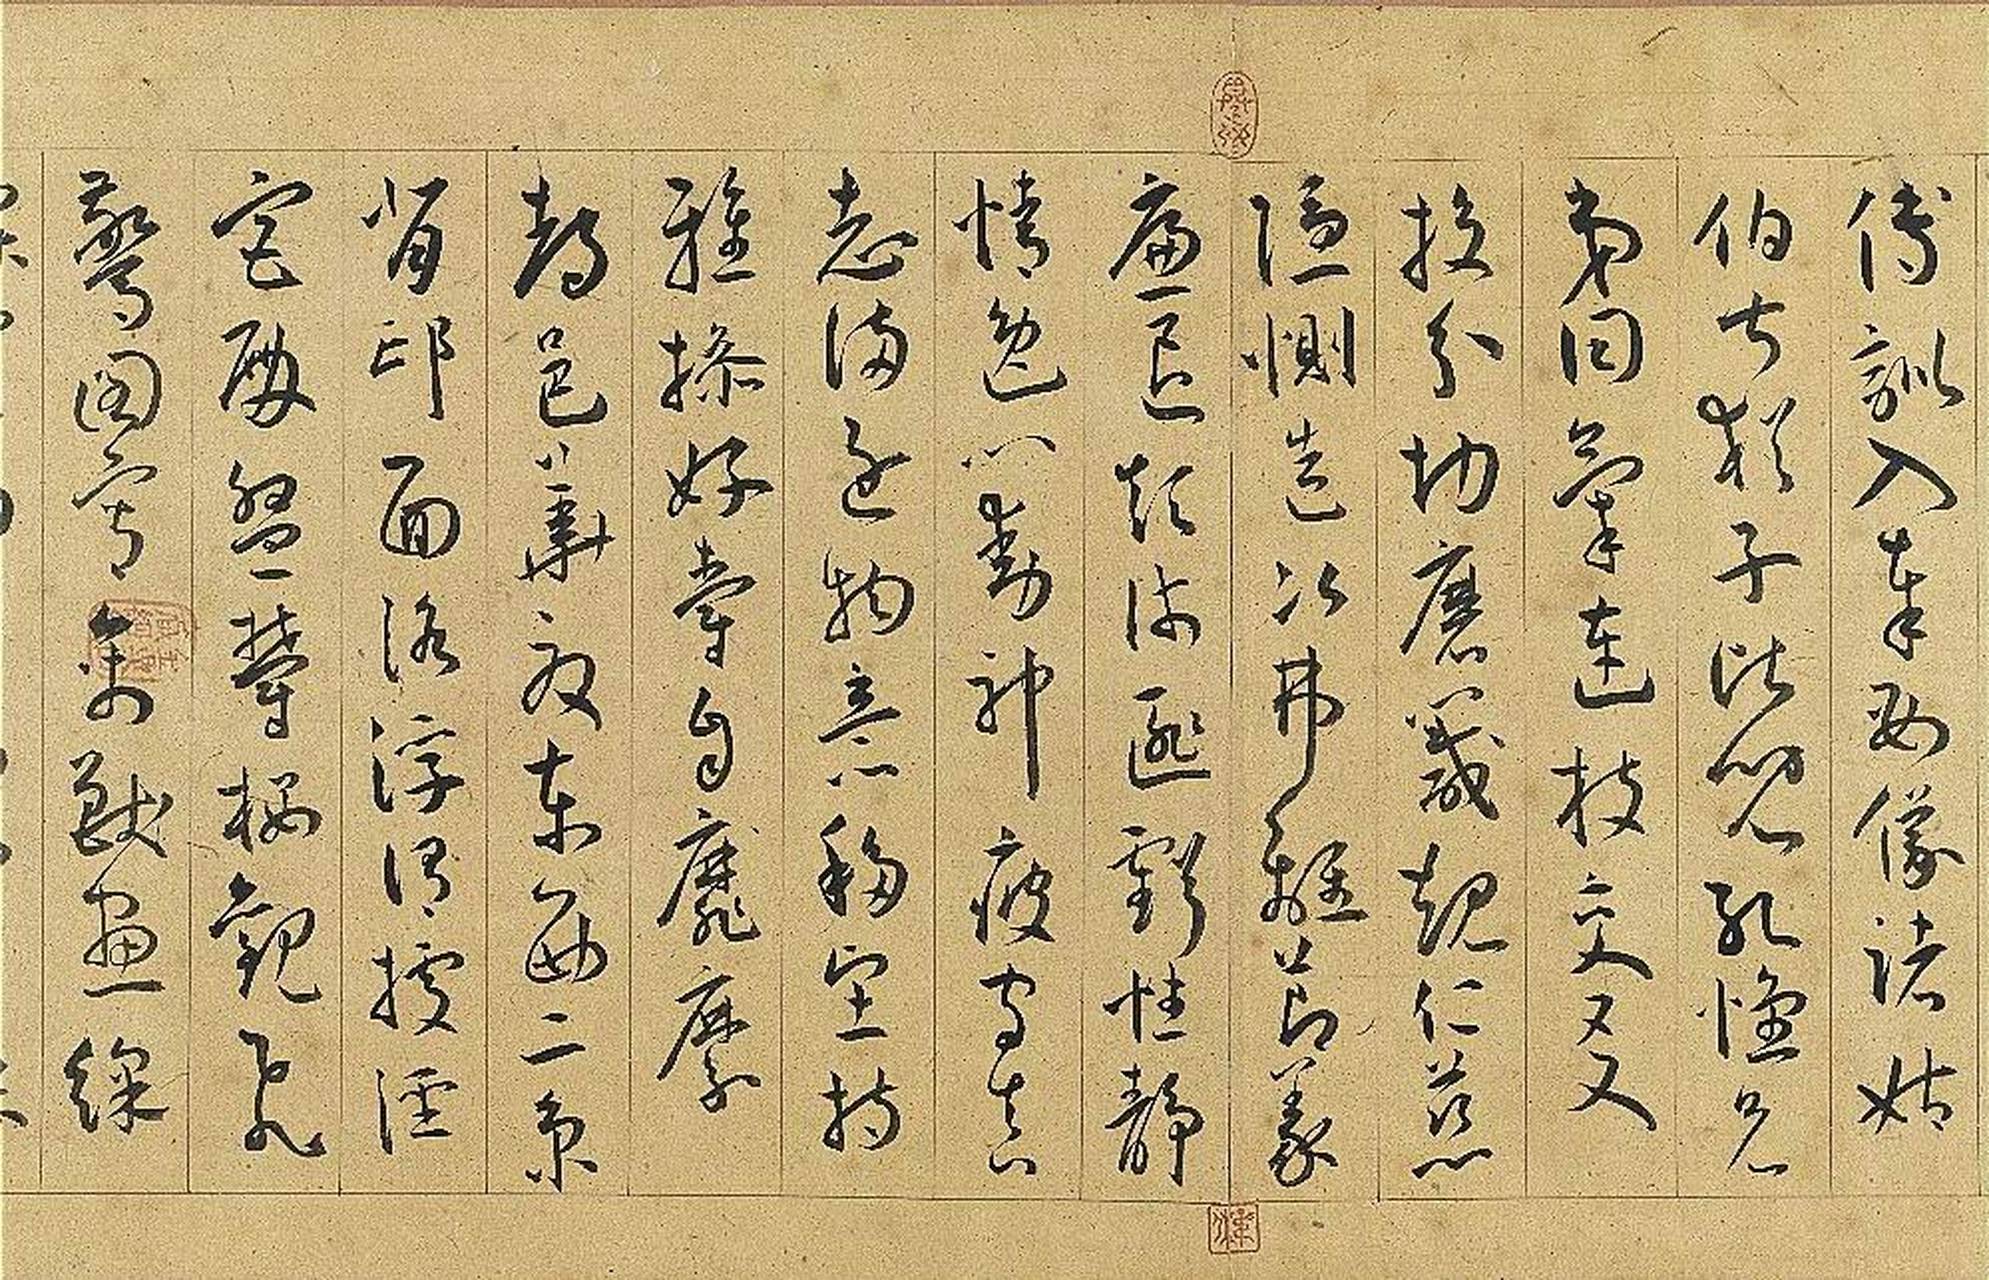 傅訓入奉母儀諸姑
伯叔猶子比兒孔懷兄
弟同氣連枝交友
投分切磨箴規仁慈
隱惻造次弗離節義
廉退顛沛匪虧性靜
情逸心動神疲守真
志滿逐物意移堅持
雅操好爵自靡縻
都邑華夏東西二京
背邙面洛浮渭據涇
宮殿盤鬱樓觀飛
驚圖寫禽獸畫綵